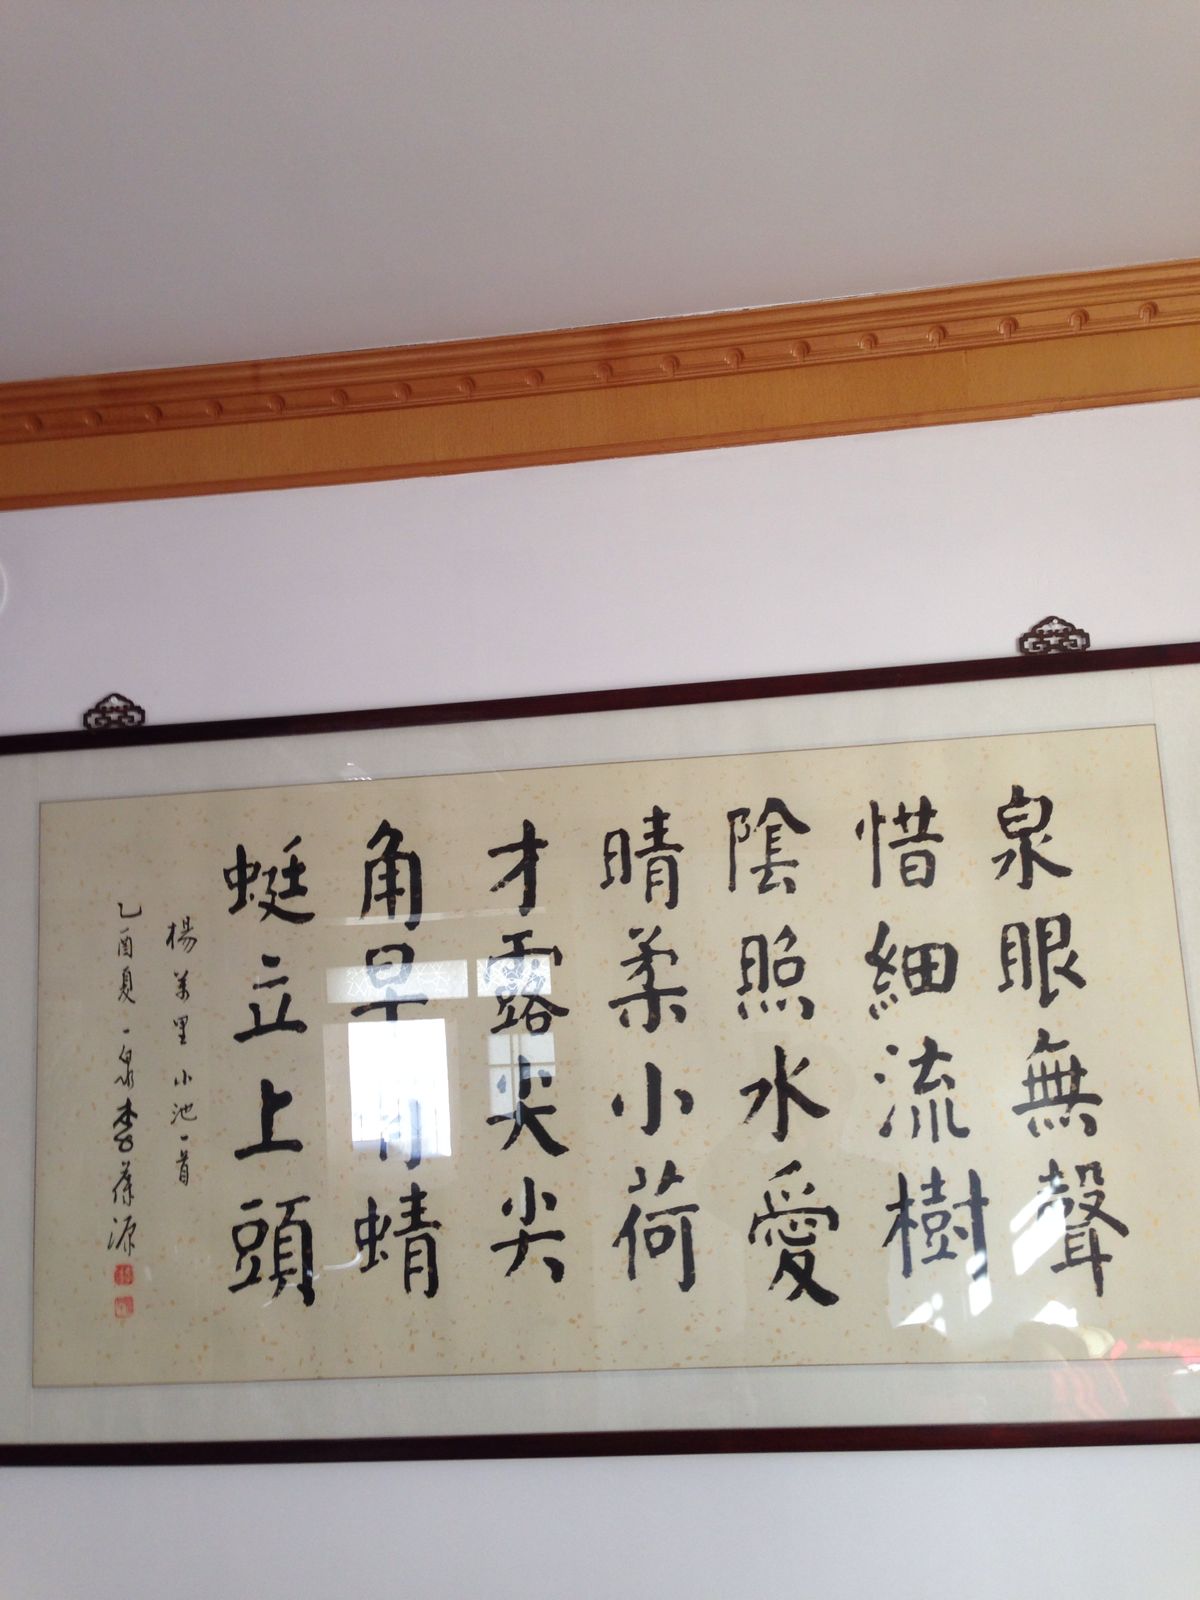 泉眼無聲
惜細流樹
陰照水愛
晴柔小荷
才露尖尖
角早有蜻
蜓立上頭
楊萬里小池一首
乙酉夏一泉李葆源